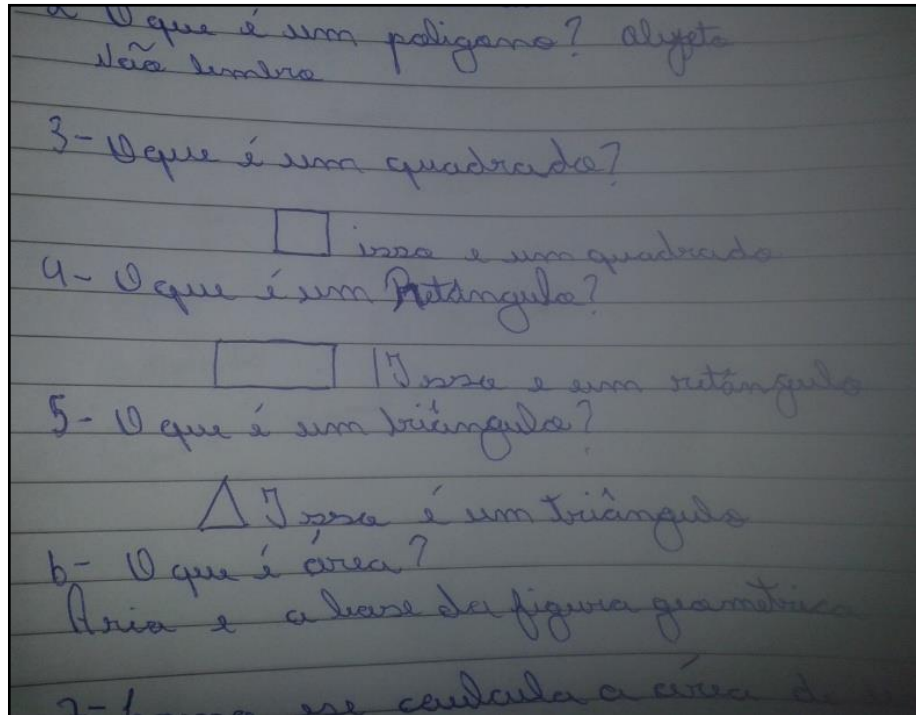 O que é um poligono? objeto
Não lembro
3- O que é um quadrado?
isso e um quadrado
4- O que é um Retângulo?
Isso e um retângulo
5- O que é um triângulo?
Isso é um triângulo
6- O que é área?
Aria e a base da figura geometrica
se caucula a área de